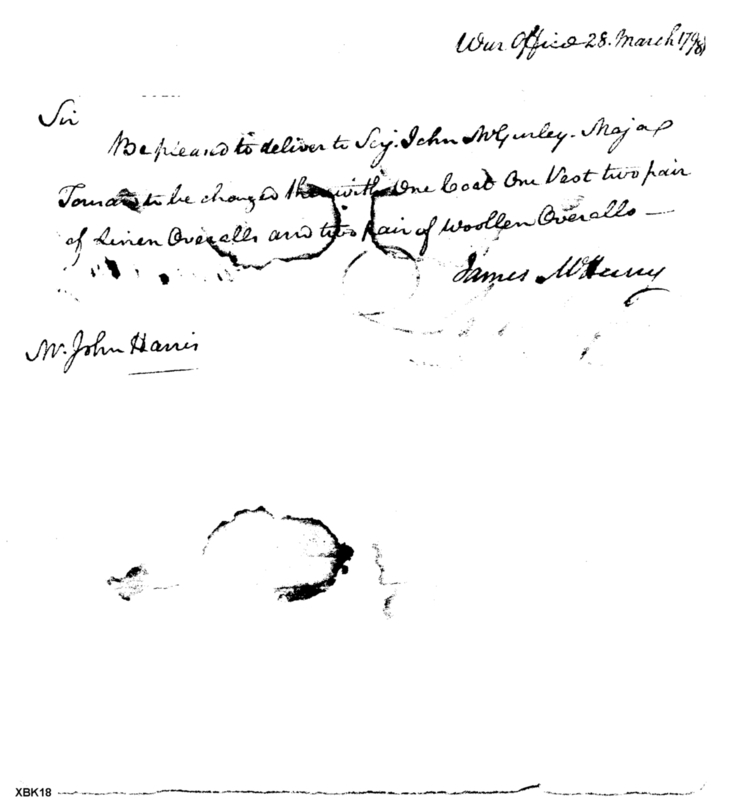 War Office 28. March 1798
Sir
Be pleased to deliver to Serj. John McGurley. Major
Tousard to be charged therewith One Coat One Vest two pair
of Linen Overalls and two pair of Woollen Overalls —
James McHenry
Mr. John Harris
XBK18